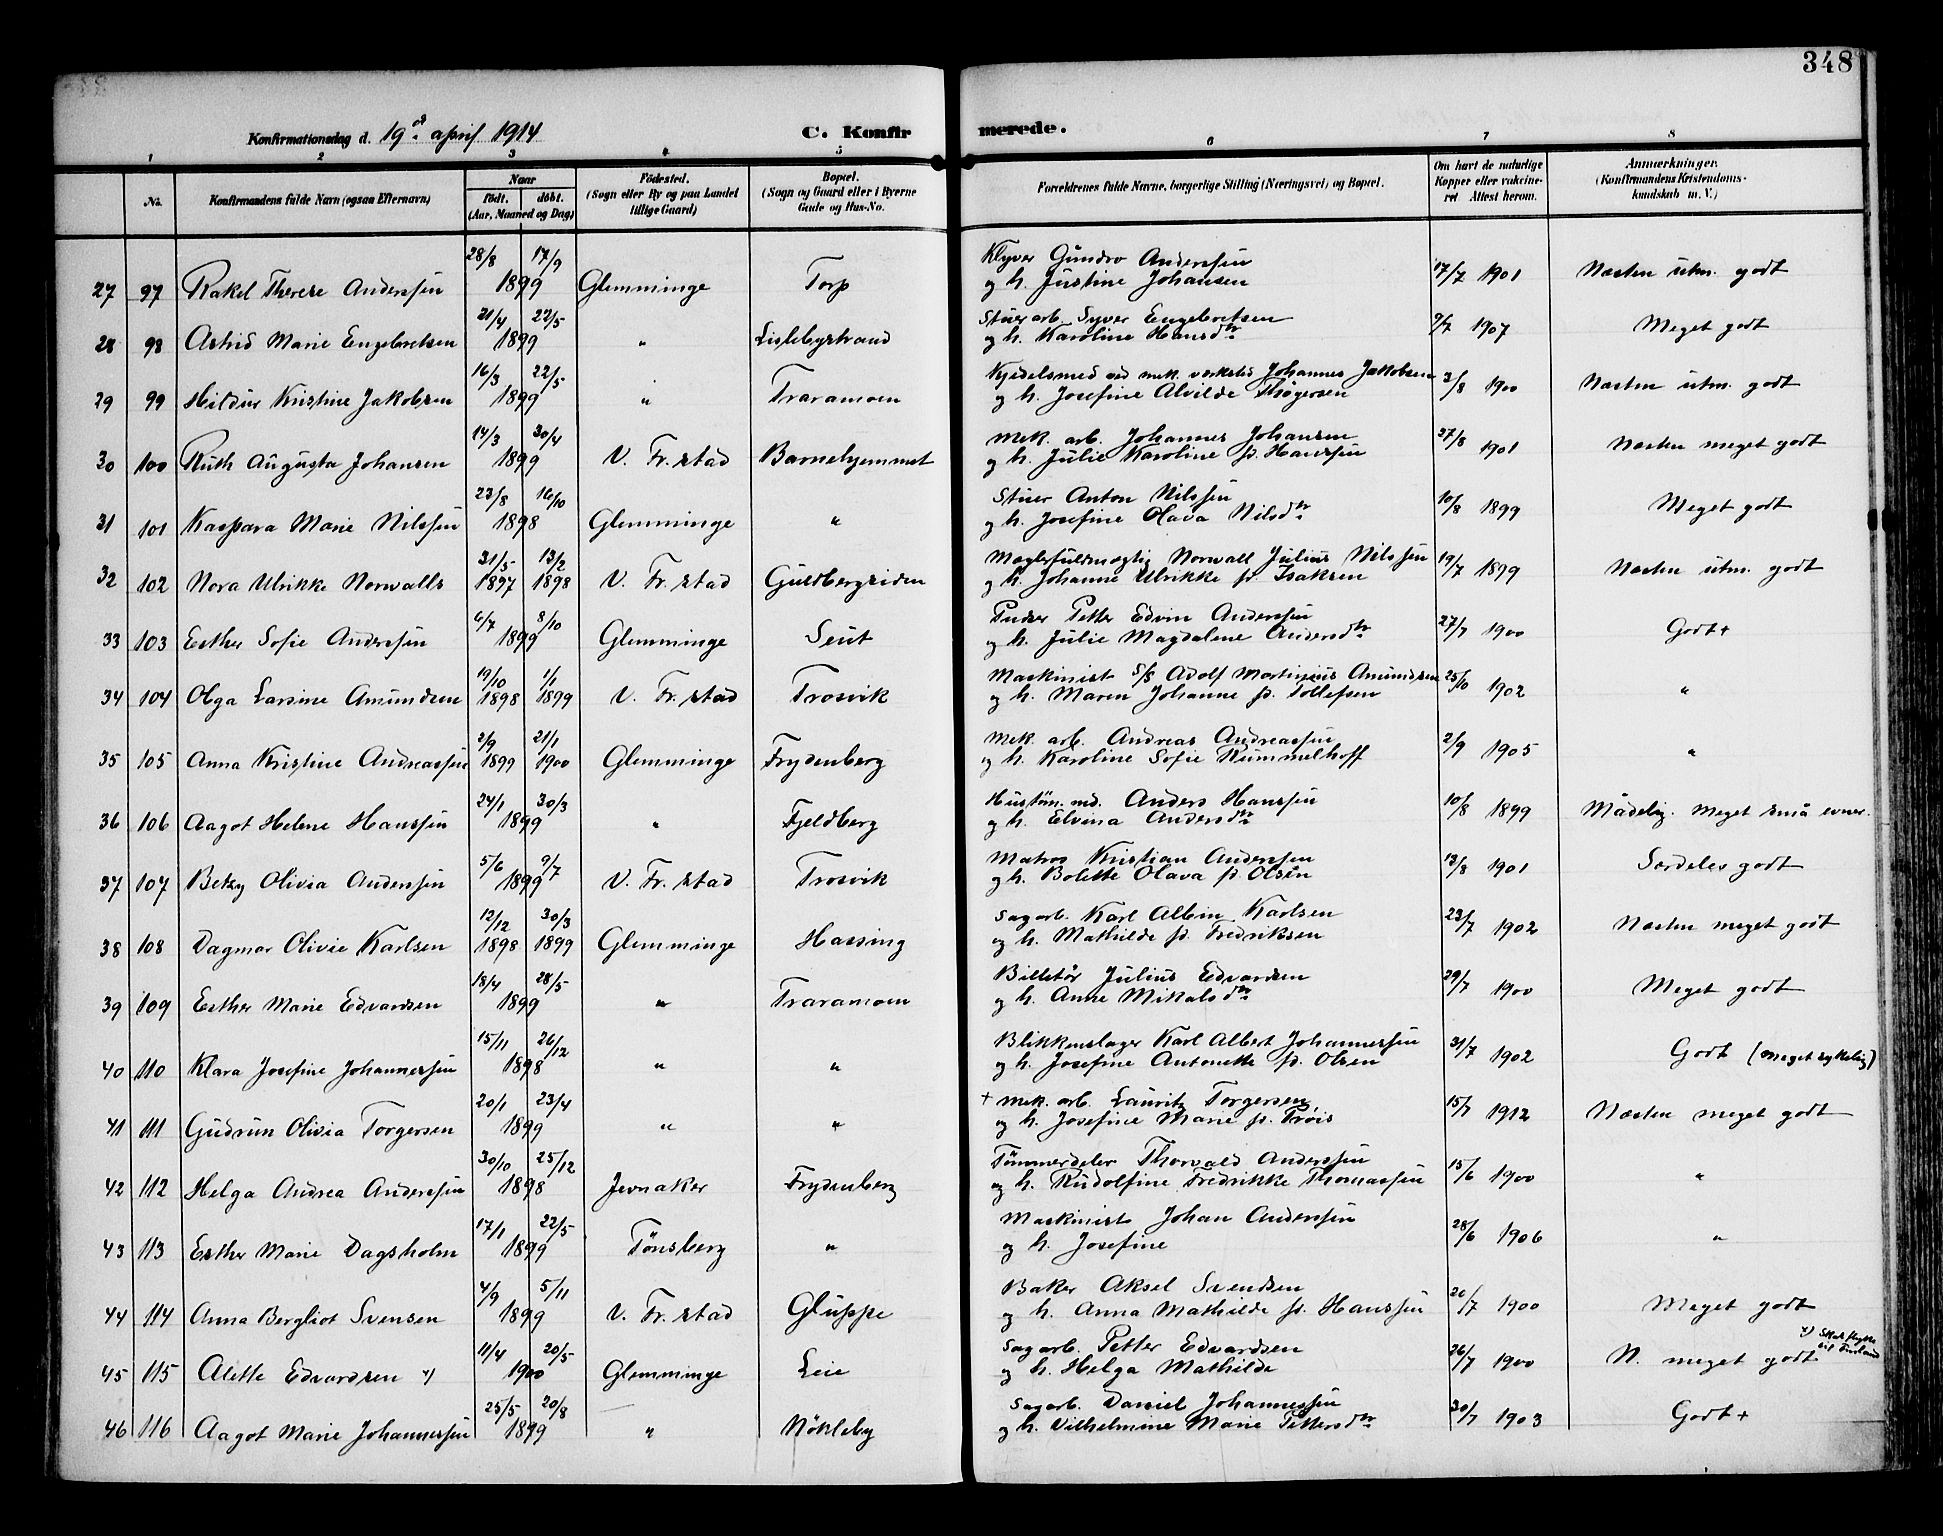 348
Konfirmationsdag d. 19de april 1914 C. Konfirmerede.
1 2 3 4 5 6 7 8
No. Konfirmandens fulde Navn (ogsaa Efternavn) Naar födt. döbt. (Aar, Maaned og Dag) Födested. (Sogn eller By og paa Landet tillige Gaard) Bopæl. (Sogn og Gaard eller i Byerne Gade og Hus-No. Forældrenes fulde Navne, borgerlige Stilling (Næringsvei) og Bopæl. Om havt de naturlige Kopper eller vakcineret Attest herom. Anmærkninger. (Konfirmandens Kristendomskundskab m. V.)
27 97 Rakel Therese Anderssen 28/8 17/9 1899 Glemminge Torp Klyver Gundro Anderssen
og h. Justine Johansen 17/7 1901 Næsten utm. godt
28 98 Astrid Marie Engebretsen 21/4 22/5 1899 " Lislebystrand Stuerarb. Syver Engebretsen
og h. Karoline Hansdtr 9/7 1907 Meget godt
29 99 Hildur Kristine Jakobsen 16/3 22/5 1899 " Traramoen Kjedelsmed ved mek. verksted Johannes Jakobsen
og h. Josefine Alvilde Thøgersen 3/8 1900 Næsten utm. godt
30 100 Ruth Augusta Johansen 14/3 30/4 1899 V. Fr.stad Barnehjemmet Mek. arb. Johannes Johansen
og h. Julie Karoline f. Hanssen 27/8 1901 Næsten meget godt
31 101 Kaspara Marie Nilssen 23/8 16/10 1898 Glemminge " Stuer Anton Nilssen
og h. Josefine Olava Nilsdtr 10/8 1899 Meget godt
32 102 Nora Ulrikke Norwalls 31/5 1897 13/2 1898 V. Fr.stad Guldbergsiden Mæglerfuldmægtig Norwall Julius Nilssen
og h. Johanne Ulrikke f. Isaksen 19/7 1899 Næsten utm. godt
33 103 Esther Sofie Anderssen 6/7 8/10 1899 Glemminge Seut Pudser Petter Edvin Anderssen
og h. Julie Magdalene Andersdtr 27/7 1900 Godt+
34 104 Olga Larsine Amundsen 19/10 1898 1/1 1899 V. Fr.stad Trosvik Maskinist S/S Adolf Martinius Amundsen
og h. Maren Johanne f. Tollefsen 25/10 1902 "
35 105 Anna Kristine Andreassen 2/9 1899 21/1 1900 Glemminge Frydenberg Mek. arb. Andreas Andreassen
og h. Karoline Sofie Rummelhoff 2/9 1905 "
36 106 Aagot Helene Hanssen 24/1 30/3 1899 " Fjeldberg Hustøm.md. Anders Hanssen
og h. Elvina Andersdtr 10/8 1899 Mådelig. Meget små evner.
37 107 Betzy Olivia Anderssen 5/6 9/7 1899 V. Fr.stad Trosvik Matros Kristian Anderssen
og h. Bolette Olava f. Olsen 13/8 1901 Særdeles godt
38 108 Dagmar Olivie Karlsen 12/12 1898 30/3 1899 Glemminge Hassing Sagarb. Karl Albin Karlsen
og h. Mathilde f. Fredriksen 23/7 1902 Næsten meget godt
39 109 Esther Marie Edvardsen 18/4 28/5 1899 " Traramoen Billetør Julius Edvardsen
og h. Anne Mikalsdtr 29/7 1900 Meget godt
40 110 Klara Josefine Johannessen 15/11 26/12 1898 " " Blikkenslager Karl Albert Johannessen
og h. Josefine Antonette f. Olsen 31/7 1902 Godt (meget sykelig)
41 111 Gudrun Olivia Torgersen 20/1 23/4 1899 " " + Mek. arb. Lauritz Torgersen
og h. Josefine Marie f. Prøis 15/7 1912 Næsten meget godt
42 112 Helga Andrea Anderssen 30/10 25/12 1898 Jevnaker Frydenberg Tømmerdeler Thorvald Anderssen
og h. Rudolfine Fredrikke Thomassen 15/6 1900 "
43 113 Esther Marie Dagsholm 17/1 22/5 1899 Tønsberg " Maskinist Johan Anderssen
og h. Josefine 28/6 1906 "
44 114 Anna Bergliot Svensen 4/9 5/11 1899 V. Fr.stad Gluppe Baker Aksel Svendsen
og h. Anna Mathilde f. Hanssen 26/7 1900 Meget godt
45 115 Alette Edvardsen x) 11/4 20/5 1900 Glemminge Leie Sagarb. Petter Edvardsen
og h. Helga Mathilde 26/7 1900 N. meget godt x) Skal flytte til Finland
46 116 Aagot Marie Johannessen 25/5 20/8 1899 " Nökleby Sagarb. Daniel Johannessen
og h. Vilhelmine Marie Pettersdtr 30/7 1903 Godt+